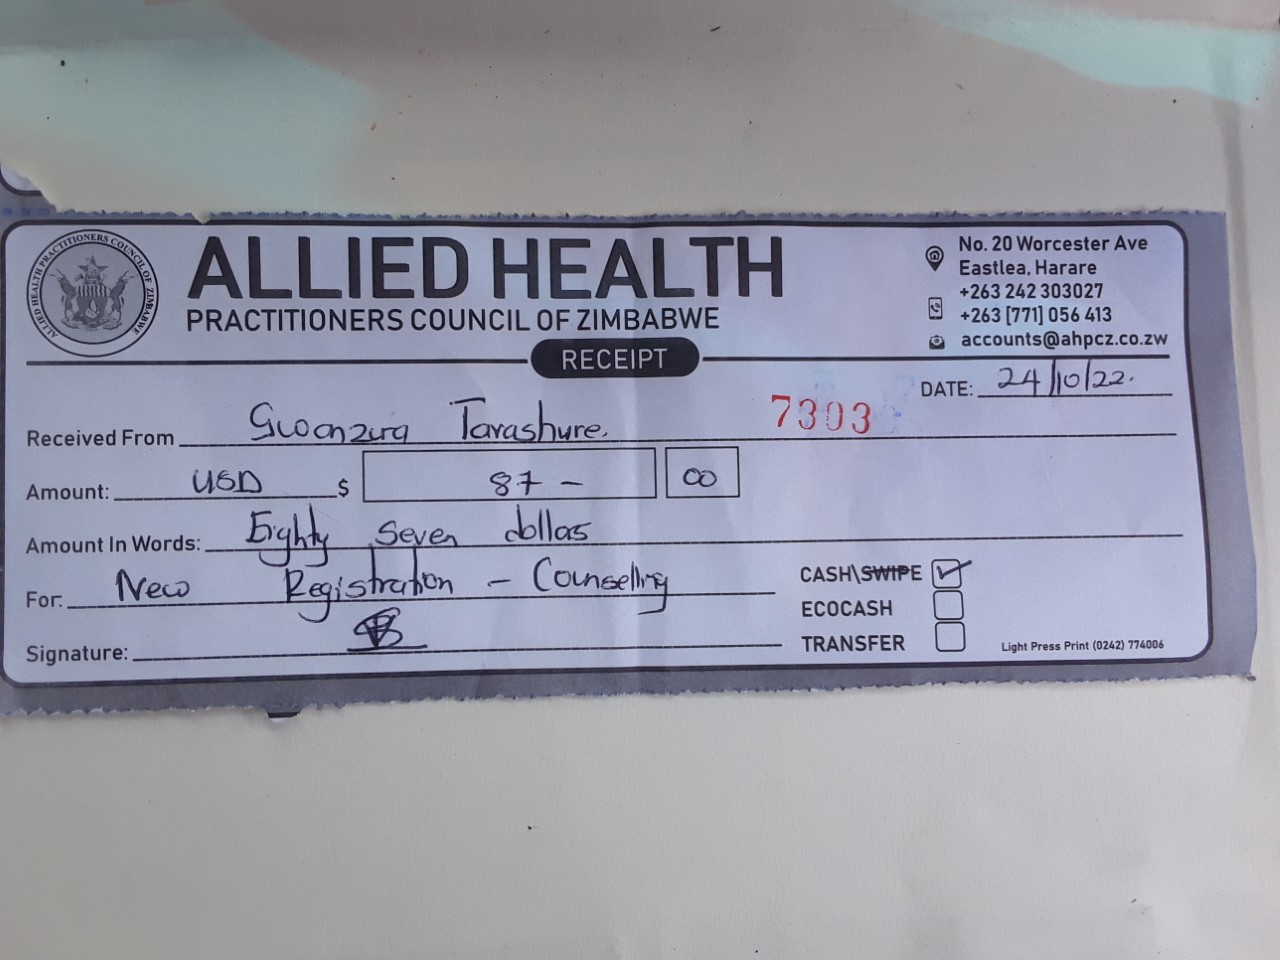 ALLIED HEALTH PRACTITIONERS COUNCIL OF ZIMBABWE
ALLIED HEALTH
PRACTITIONERS COUNCIL OF ZIMBABWE
No. 20 Worcester Ave
Eastlea, Harare
+263 242 303027
+263 [771] 056 413
accounts@ahpcz.co.zw
RECEIPT
DATE: 24/10/22.
7303
Received From Gwanzura Tarashure.
Amount: USD $ 87 - 00
Amount In Words: Eighty Seven dollars
For: New Registration - Counselling
CASH\SWIPE
ECOCASH
Signature:
TRANSFER
Light Press Print (0242) 774006